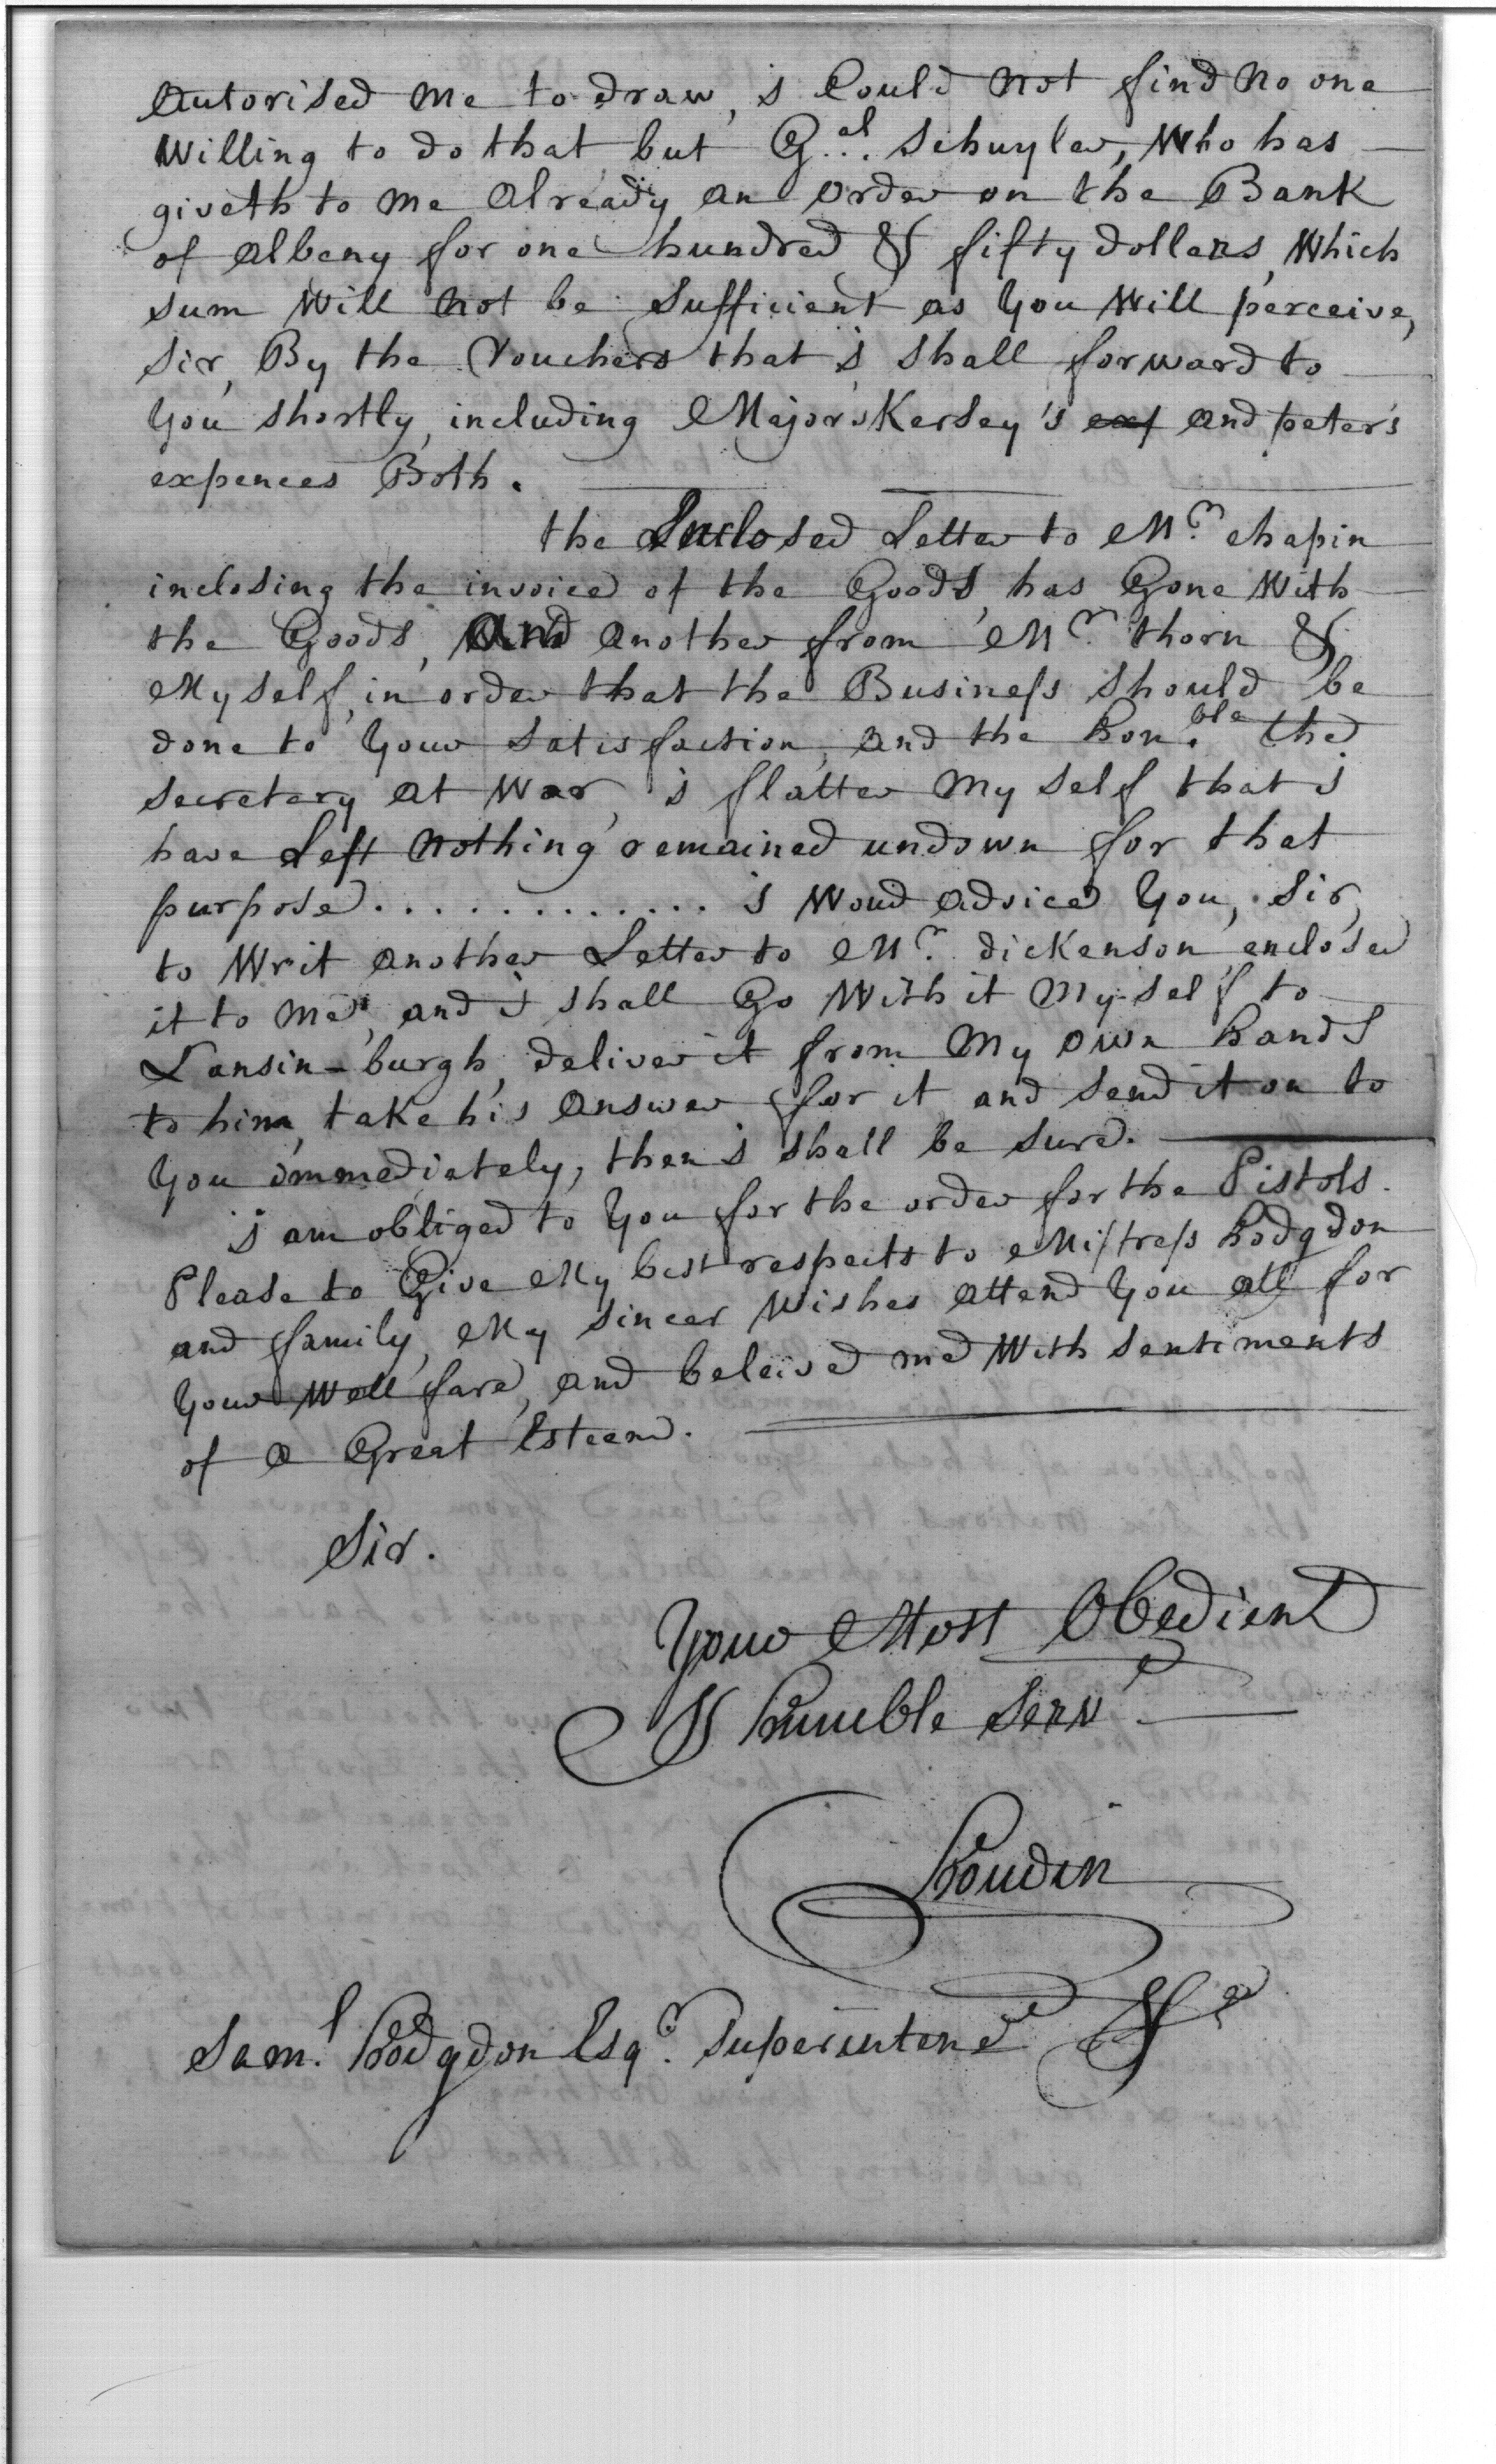 Autorised me to draw, i Could not find no one
Willing to do that but G.al Schuyler, Who has
giveth to me Already an order on the Bank
of Albany for one hundred & fifty dollars, Which
sum Will not be Sufficient as you Will perceive,
Sir, By the Vouchers that i shall forward to
you shortly, including Major Kersey's exp and peter's
expences Both.
the Inclosed Letter to Mr. chapin
inclosing the invoice of the Goods, has Gone With
the Goods, And another from Mr. thorn &
Myself, in order that the Business should be
done to your satisfaction, and the hon.ble the
secretary at War, i flatter my self that i
have Left nothing remained undown for that
purpose............. i Woud advice you, Sir,
to Writ another Letter to Mr. dickenson enclosed
it to me, and i shall Go With it My self to
Lansin-burgh, deliver it from My own hands
to him, take his Answer for it and send it on to
you immediately, then i shall be sure.
i am obliged to you for the order for the Pistols.
Please to Give My best respects to Mistress hodgdon
and family, My sincer Wishes attend you all for
your Well fare, and beleive me With sentiments
of a Great Esteem.
Sir.
Your Most Obedient
& humble Serv
Boudin
Sam.l hodgdon Esqr. Superintend &c